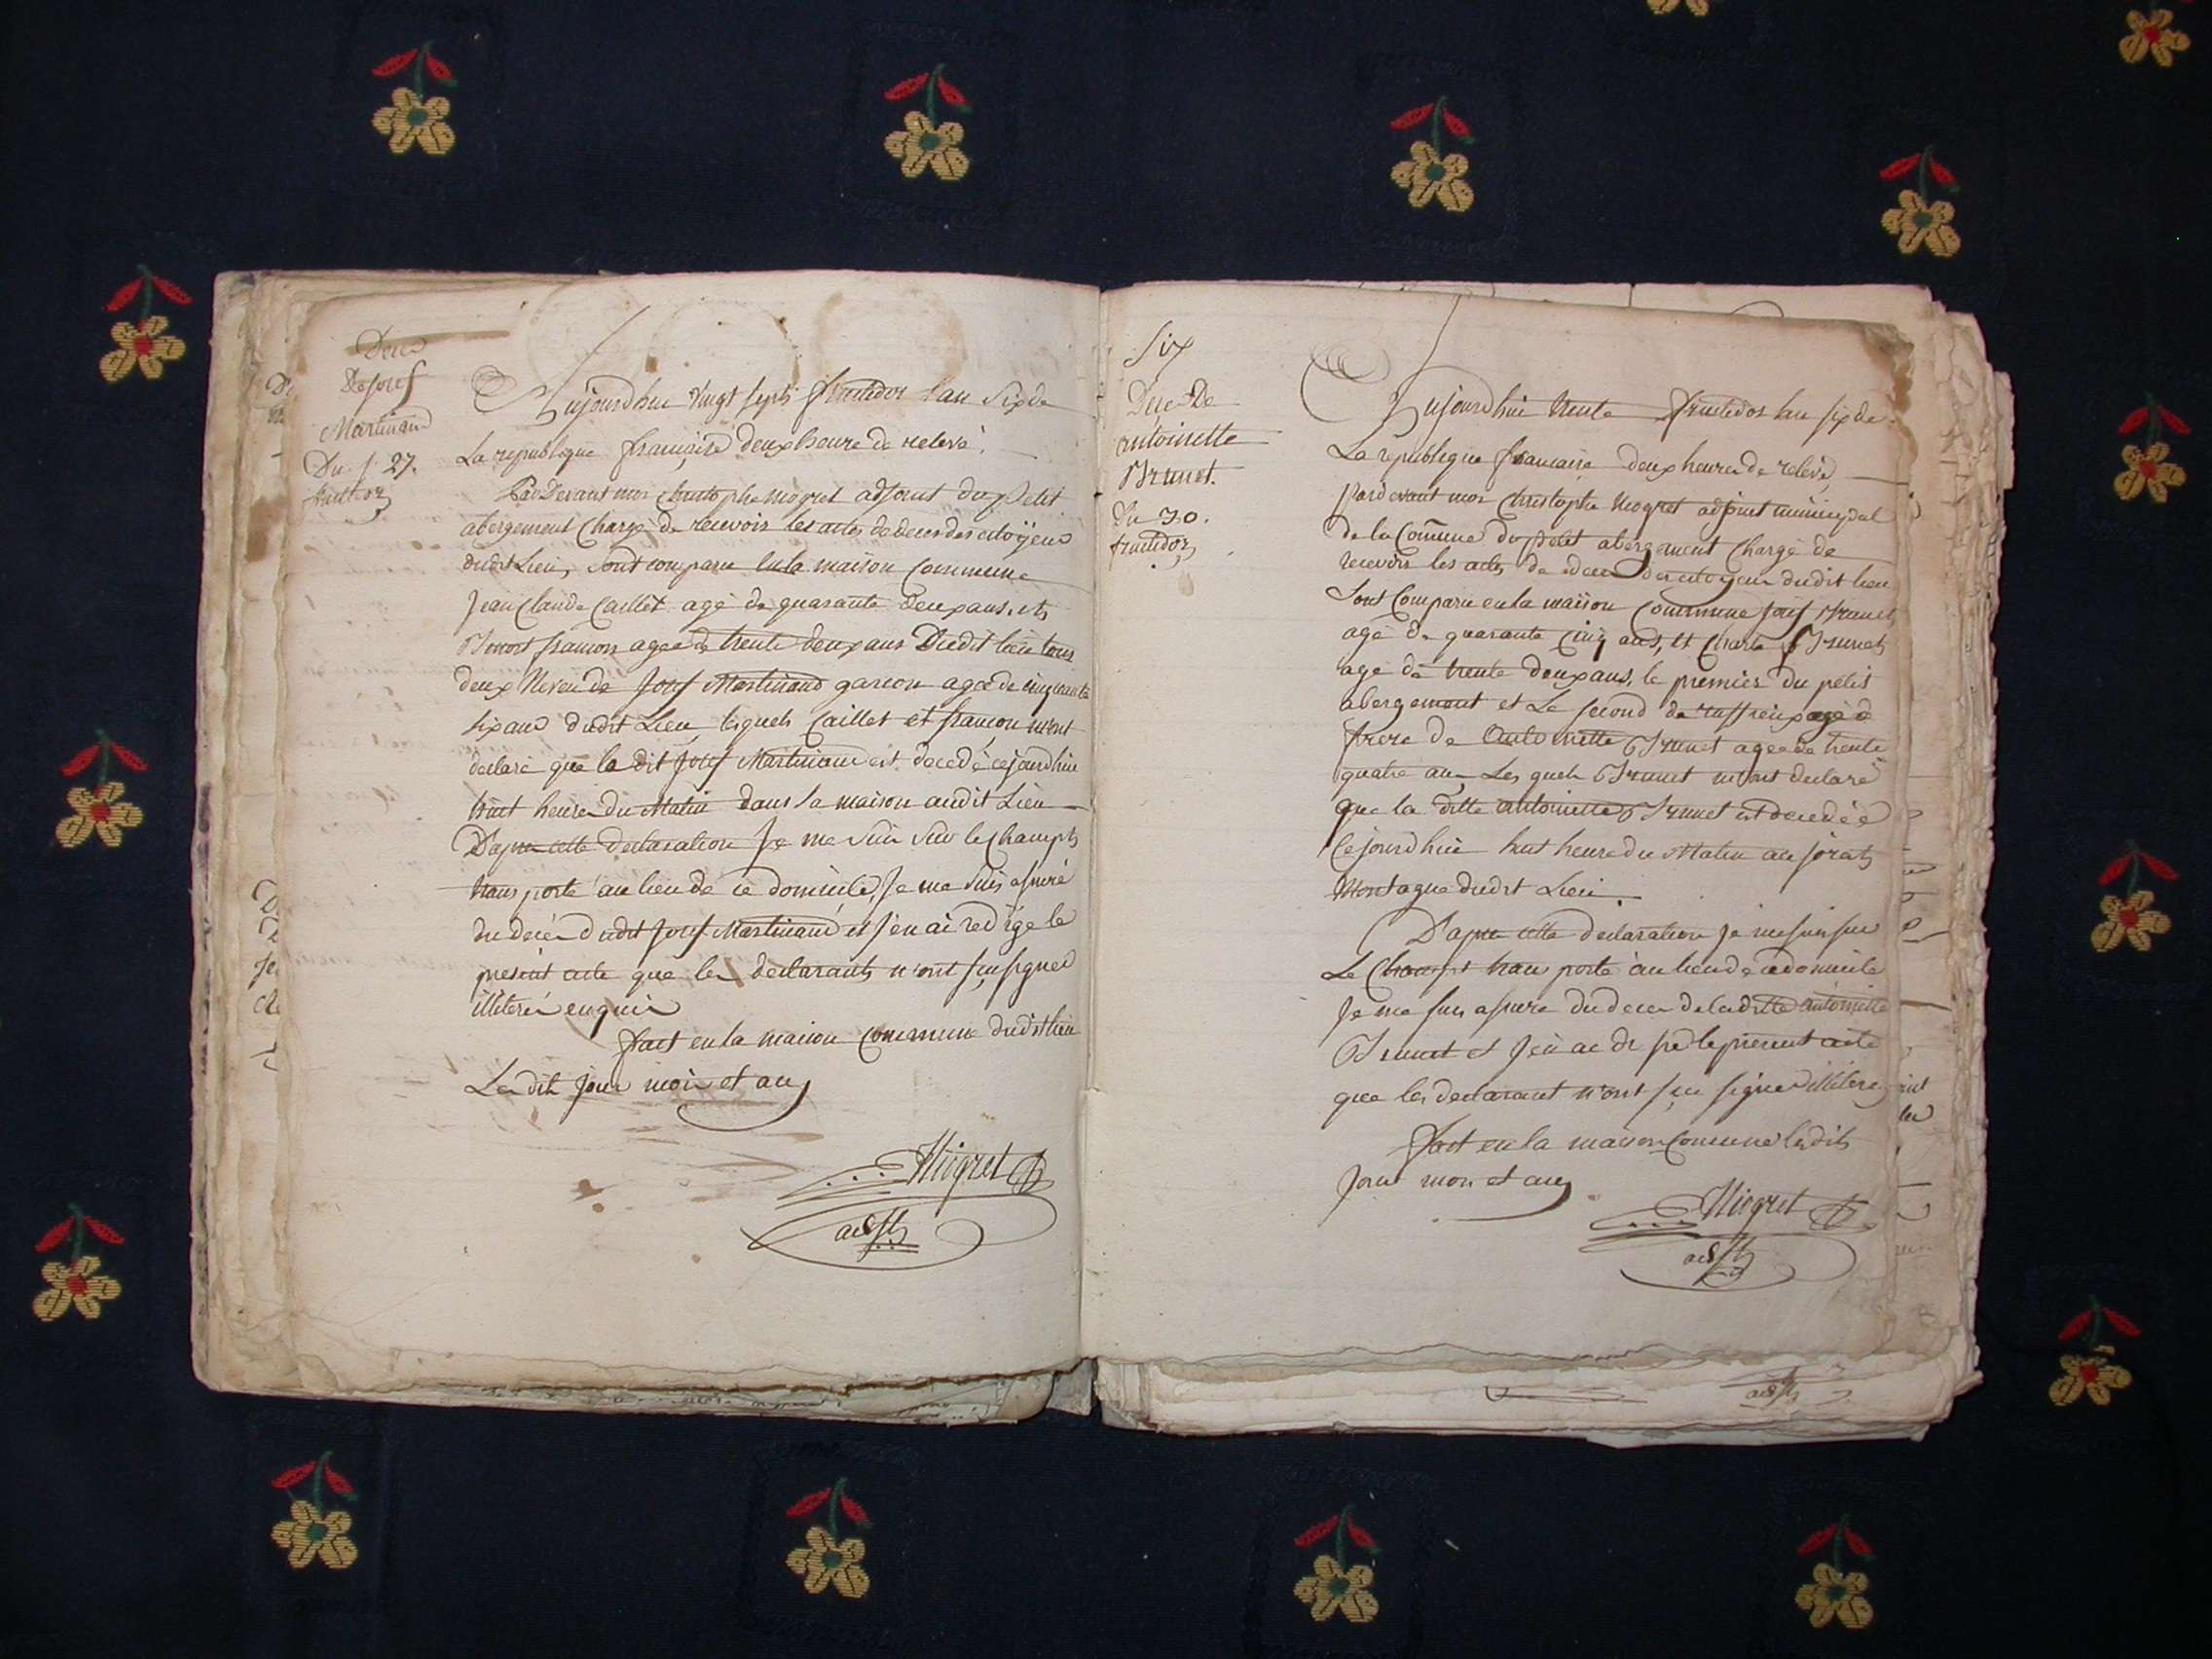 Deces
De josef
Martinand
Du 27.
fructidor
Aujourdhui vingt sept fructidor l'an Six de
La republique francaise deux heure de relevé.
Par Devant moi christophe mogret adjoint du petit
abergement Chargé de recevoir les actes de deces des citoÿens
dudit Lieu, sont comparu en la maison Commune
Jean Claude Caillet agé de quarante deux ans. et
Benoit françon agee de trente deux ans Dudit lieu tous
deux Neveu de Josef Martinand garcon agee de cinquante
six ans dudit Lieu, lesquels Caillet et françon m'ont
declaré que le dit Josef Martinand est decedé cejourdhui
huit heure du Matin dans la maison audit Lieu
Dapres cette declaration Je me suis sur le Champts
trans porté au lieu de ce domicile, Je me suis assuré
du deces dudit Josef Martinand et J'en ai redigé le
present acte que les declarants n'ont sçu signer
illiteré enquis
fait en la maison commune dudit lieu
Les dits Jour mois et an
Mogret
adjt
Six
Deces De
antoinette
Brunet.
Du 30.
fructidor
Aujourdhui trente fructidor lan six de
La republique francaise deux heure de relevé,
Pardevant moi Christophe Mogret adjoint municipal
de la Comune du petit abergement Chargé de
recevoir les actes de deces des citoyens dudit lieu
Sont Comparu en la maison Commune Josef Brunet
agé de quarante Cinq ans, et Charle Brunet
agé de trente deux ans, le premier du petit
abergement et Le second de ruffieux
frere de Antoinette Brunet agee de trente
quatre ans Lesquels Brunet m'ont declaré
que la ditte antoinette Brunet est decedée
Cejourdhui huit heure du Matin au jorat
Montagne dudit Lieu.
Dapres cette declaration Je me suis sur
Le Champt trans porté au lieu de ce domicile
Je me suis assure du deces de la ditte antoinette
Brunet et J'en ai dressé le present acte
que les declarant n'ont sçu signer illiteré
fait en la maison Comune lesdits
Jour mois et an
Mogret
adjt
adjt